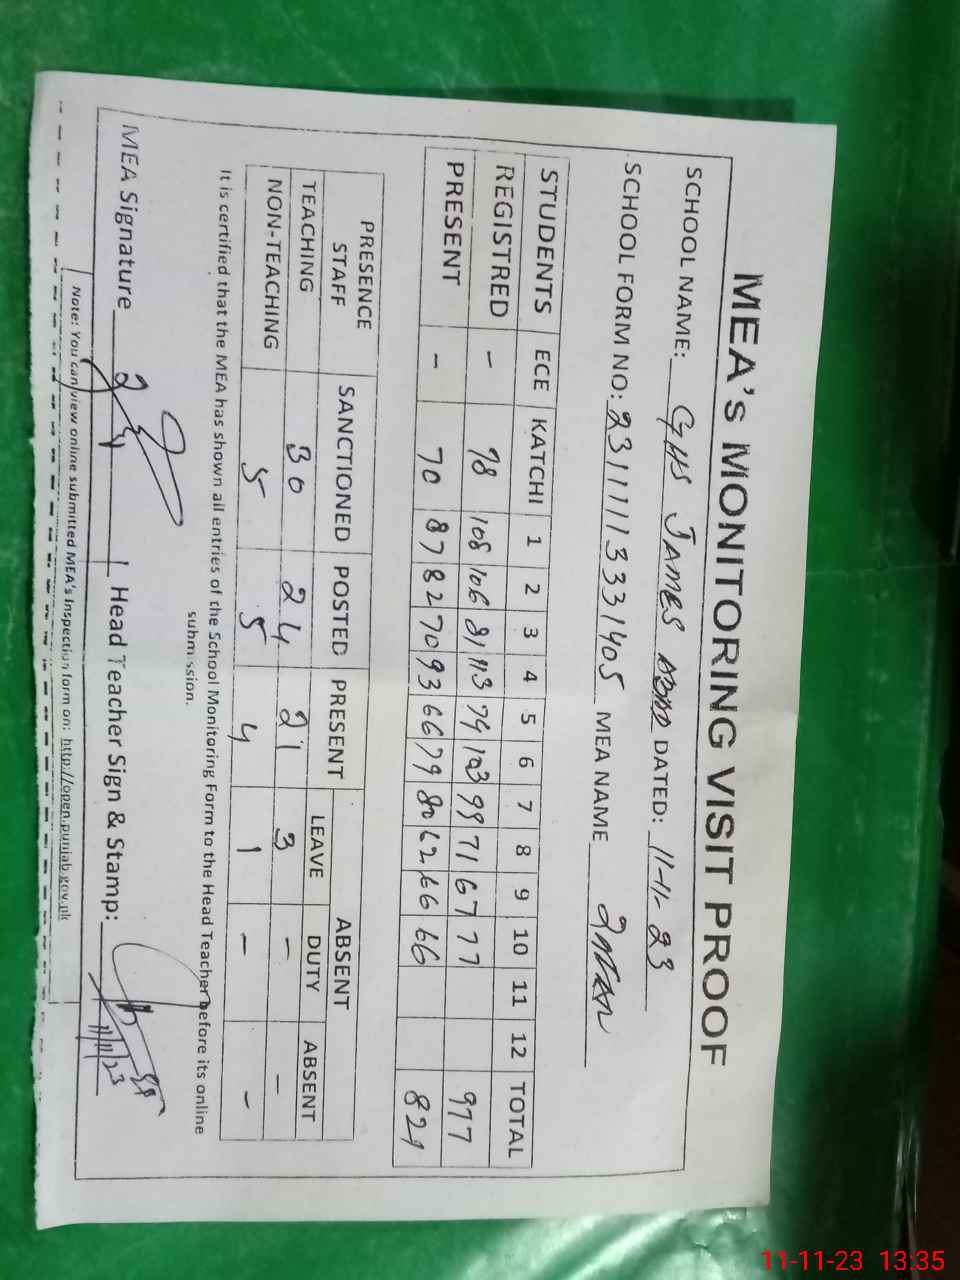 MEA's MONITORING VISIT PROOF
SCHOOL NAME: GHS JAMES ABAD DATED: 11-11-23
SCHOOL FORM NO: 23111113331405 MEA NAME
STUDENTS ECE KATCHI 1 2 3 4 5 6 7 8 9 10 11 12 TOTAL
REGISTRED - 78 108 106 81 113 74 103 99 71 67 77 977
PRESENT - 70 87 82 70 93 66 79 80 62 66 66 821
PRESENCE STAFF SANCTIONED POSTED PRESENT ABSENT
LEAVE DUTY ABSENT
TEACHING 30 24 21 3 - -
NON-TEACHING 5 5 4 1 - -
It is certified that the MEA has shown all entries of the School Monitoring Form to the Head Teacher before its online
submission.
MEA Signature Head Teacher Sign & Stamp:
11/11/23
Note: You can view online submitted MEA's Inspection form on: http://open.punjab.gov.pk
11-11-23 13:35